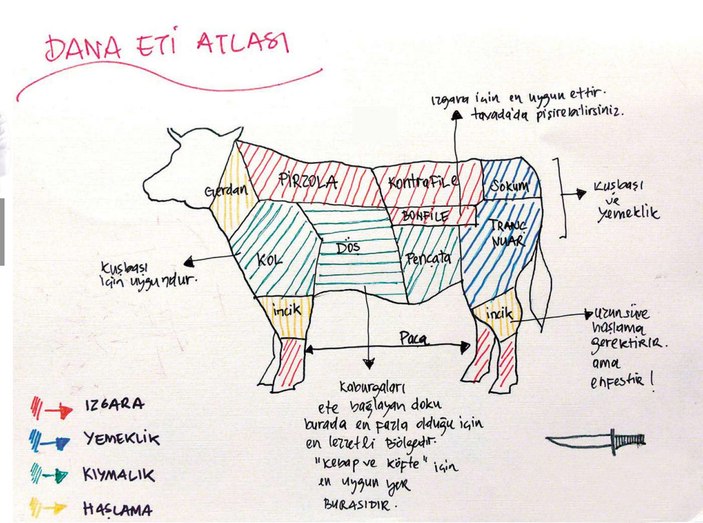 DANA ETİ ATLASI
Izgara için en uygun ettir.
tavada'da pişirebilirsiniz.
Gerdan
PİRZOLA
Kontrafile
Sokum
Kuşbaşı
ve
yemeklik
BONFİLE
TRANÇ
NUAR
KOL
DÖŞ
Pençata
Kuşbaşı
için uygundur.
incik
incik
Uzun süre
haşlama
gerektirir.
ama
enfestir!
Paça
Kaburgaları
ete bağlayan doku
burada en fazla olduğu için
en lezzetli bölgedir.
"Kebap ve köfte" için
en uygun yer
BURASIDIR.
IZGARA
YEMEKLİK
KIYMALIK
HAŞLAMA